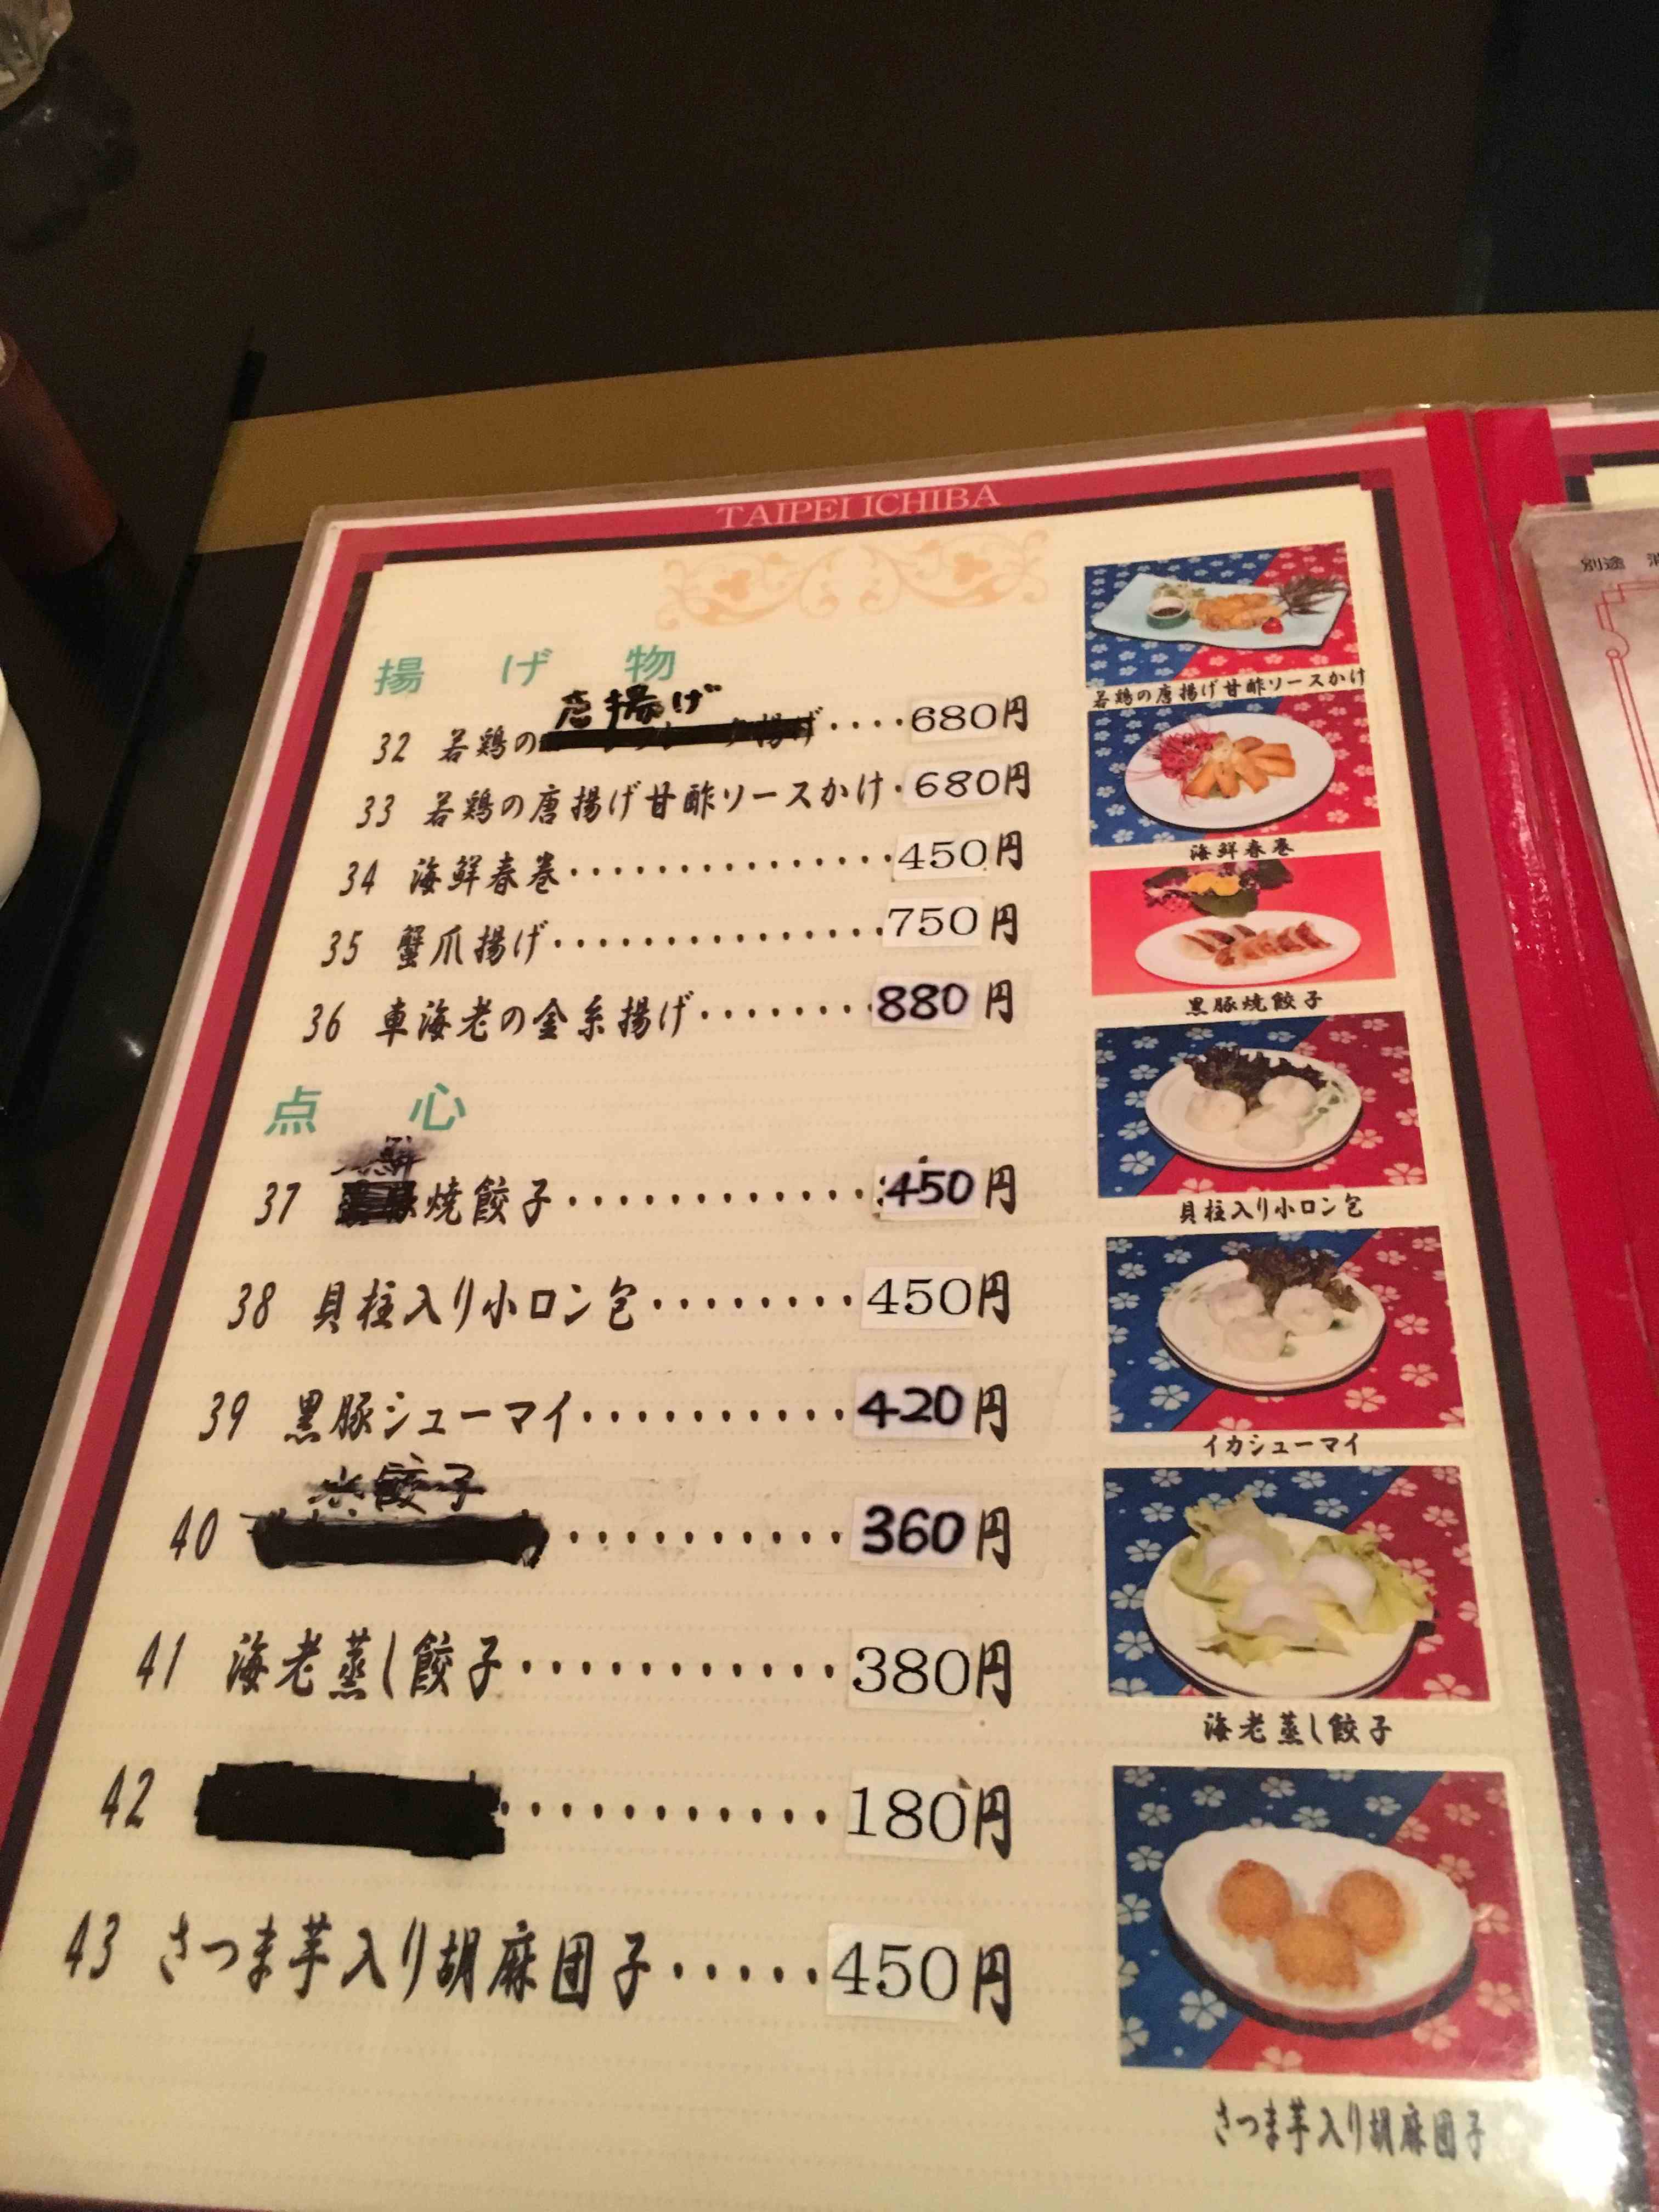 TAIPEI ICHIBA
揚げ物
唐揚げ
32 若鶏の 揚げ ････680円
33 若鶏の唐揚げ甘酢ソースかけ･680円
34 海鮮春巻･･･････････････450円
35 蟹爪揚げ･･･････････････750円
36 車海老の金糸揚げ････････880円
点心
鮮
37 焼餃子･････････････450円
38 貝柱入り小ロン包････････450円
39 黒豚シューマイ･･････････420円
餃子
40 ･･････････360円
41 海老蒸し餃子･･･････････380円
42 ････････････180円
43 さつま芋入り胡麻団子･････450円
若鶏の唐揚げ甘酢ソースかけ
海鮮春巻
黒豚焼餃子
貝柱入り小ロン包
イカシューマイ
海老蒸し餃子
さつま芋入り胡麻団子